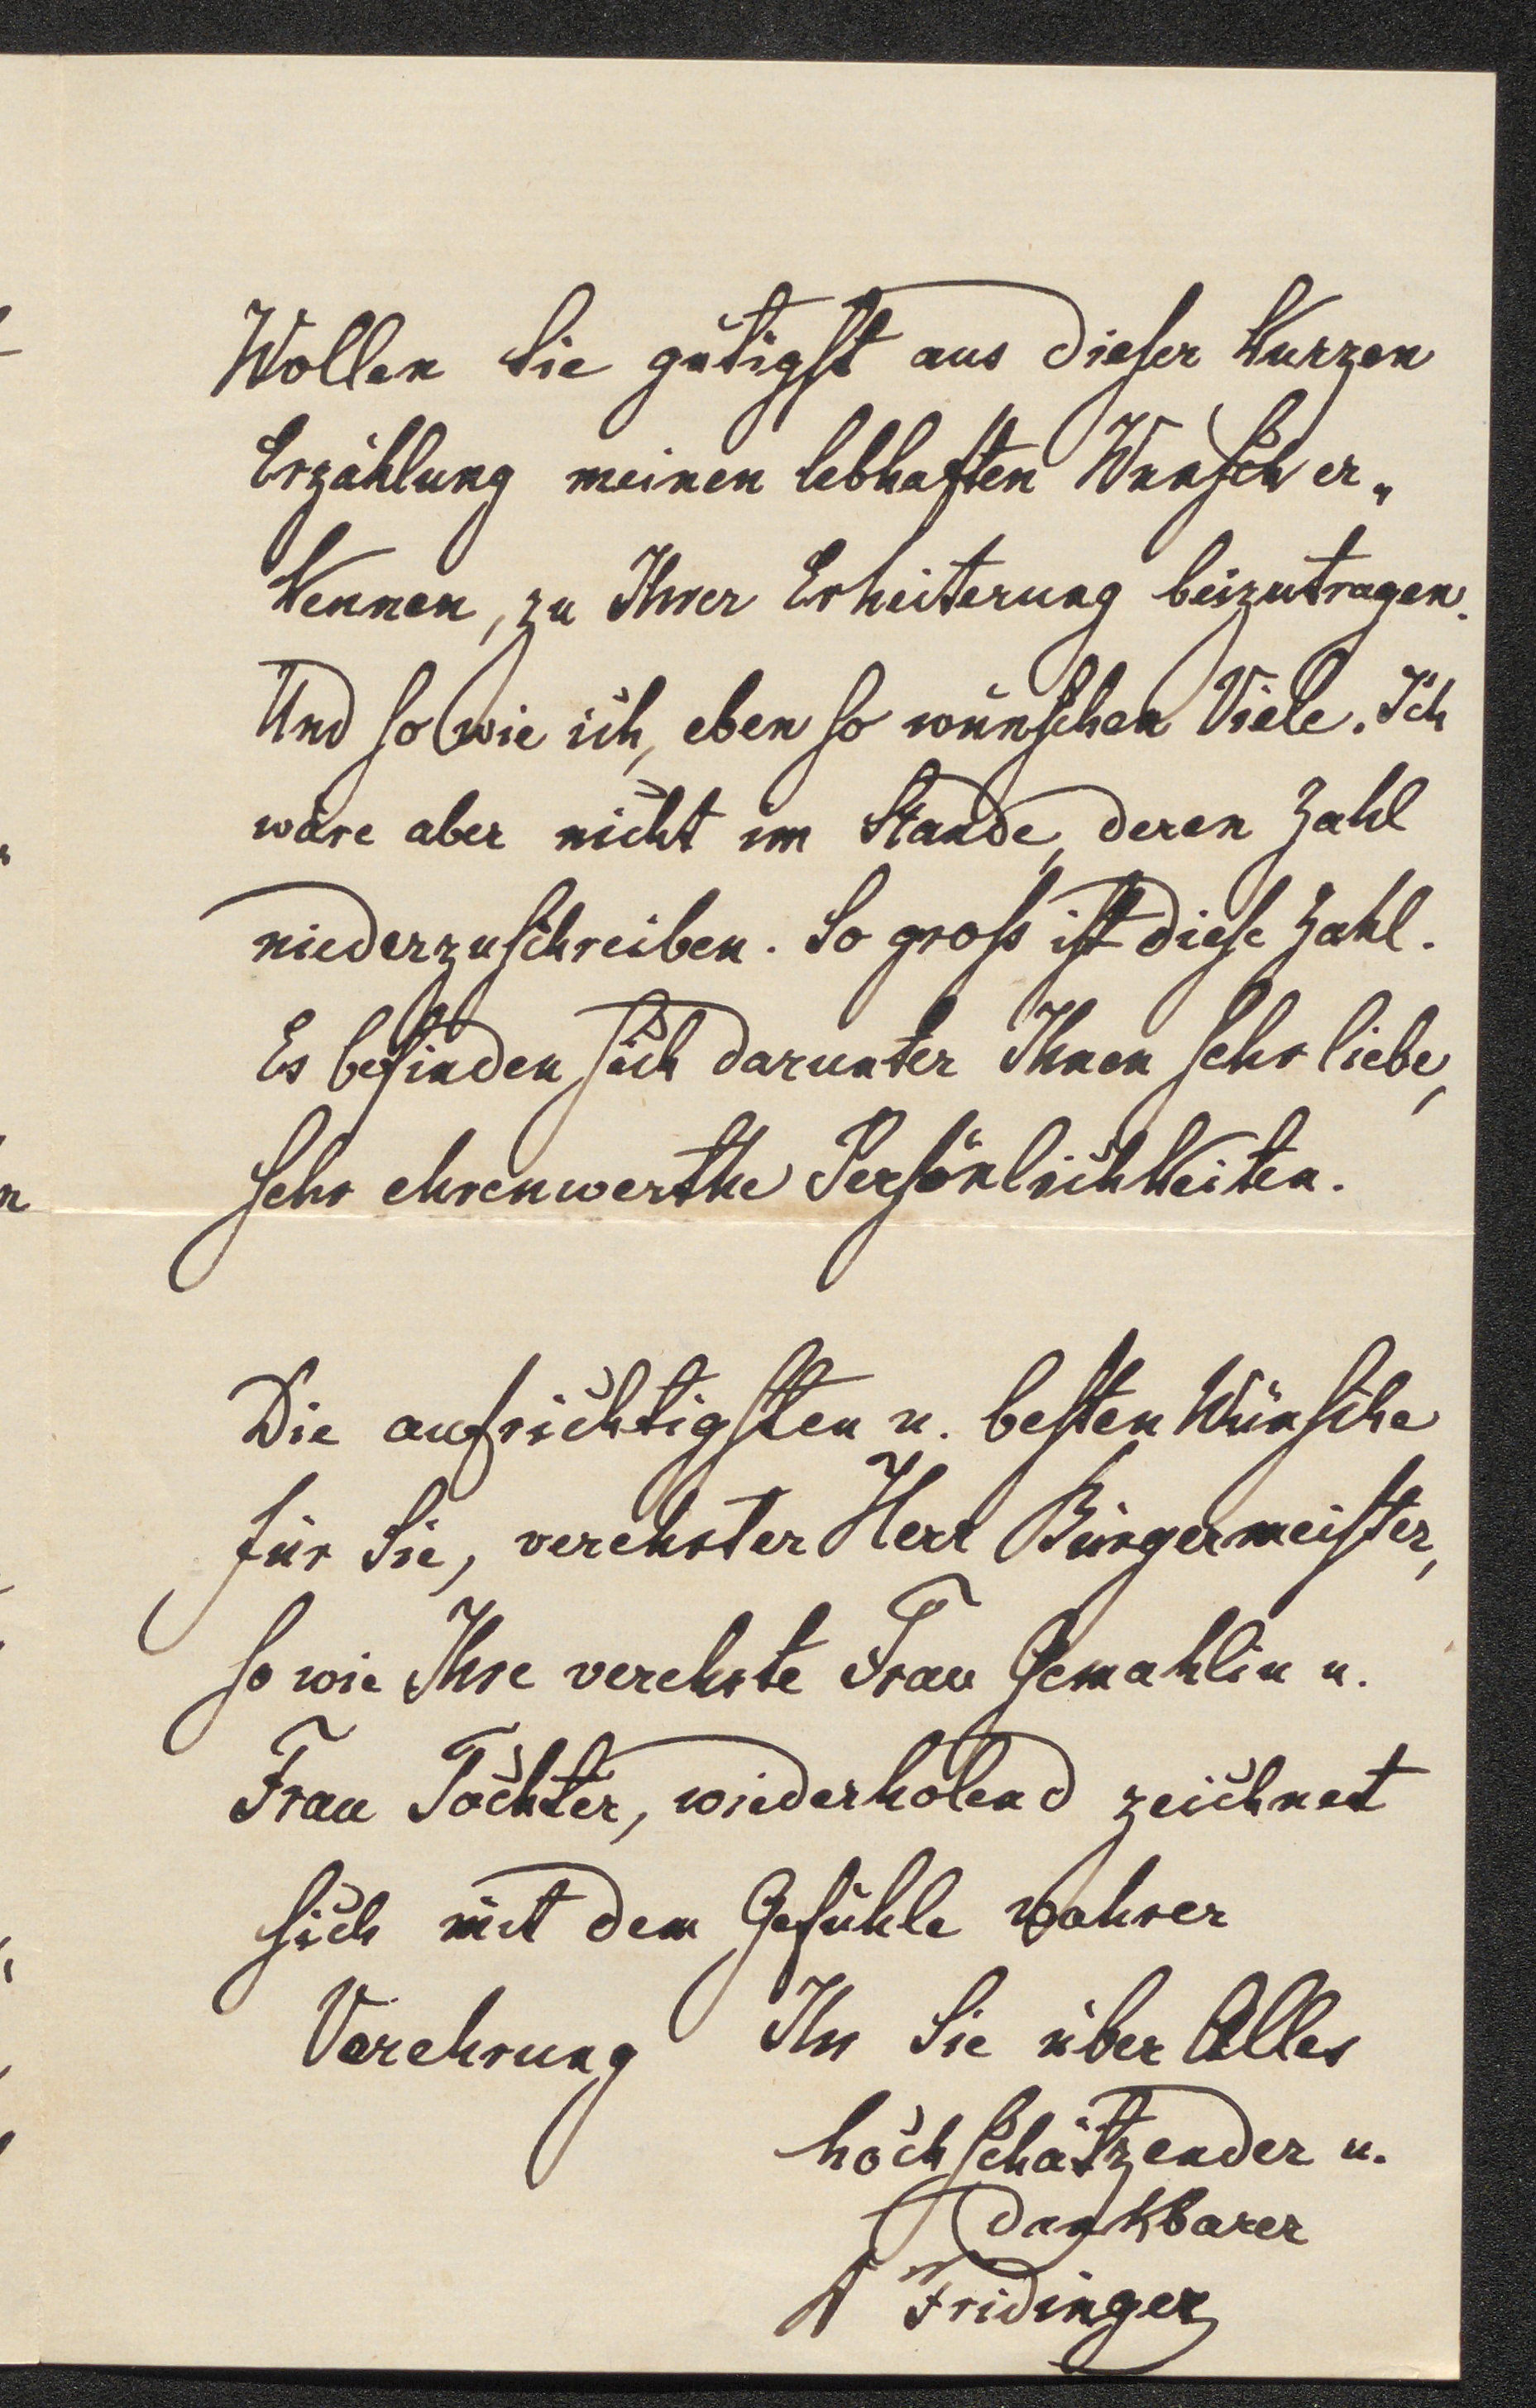 Wollen Sie gütigst aus dieser kurzen
Erzählung meinen lebhaften Wunsch er„
kennen, zu Ihrer Erheiterung beizutragen.
Und so wie ich, eben so wünschen Viele. Ich
wäre aber nicht im Stande, deren Zahl
niederzuschreiben. So gross ist diese Zahl.
Es befinden sich darunter Ihnen sehr liebe,
sehr ehrenwerthe Persönlichkeiten.
Die aufrichtigsten u. besten Wünsche
für Sie, verehrter Herr Bürgermeister,
so wie Ihre verehrte Frau Gemahlin u.
Frau Tochter, wiederholend zeichnet
sich mit dem Gefühle wahrer
Verehrung Ihr Sie über Alles
hochschätzender u.
dankbarer
Fridinger